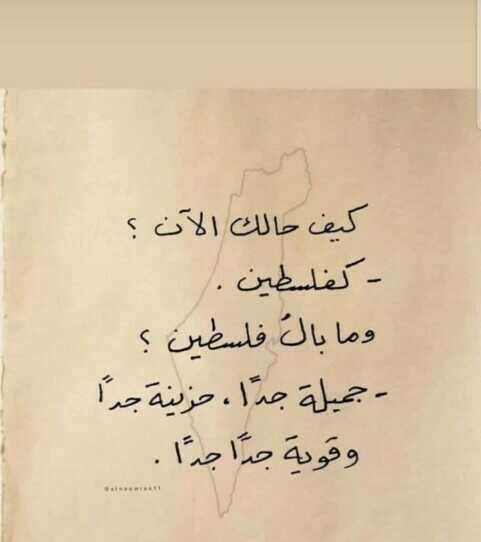 كيف حالك الآن ؟
- كفلسطين .
وما بالُ فلسطين ؟
- جميلة جدًا ، حزينة جدًا
وقوية جدًا جدًا .